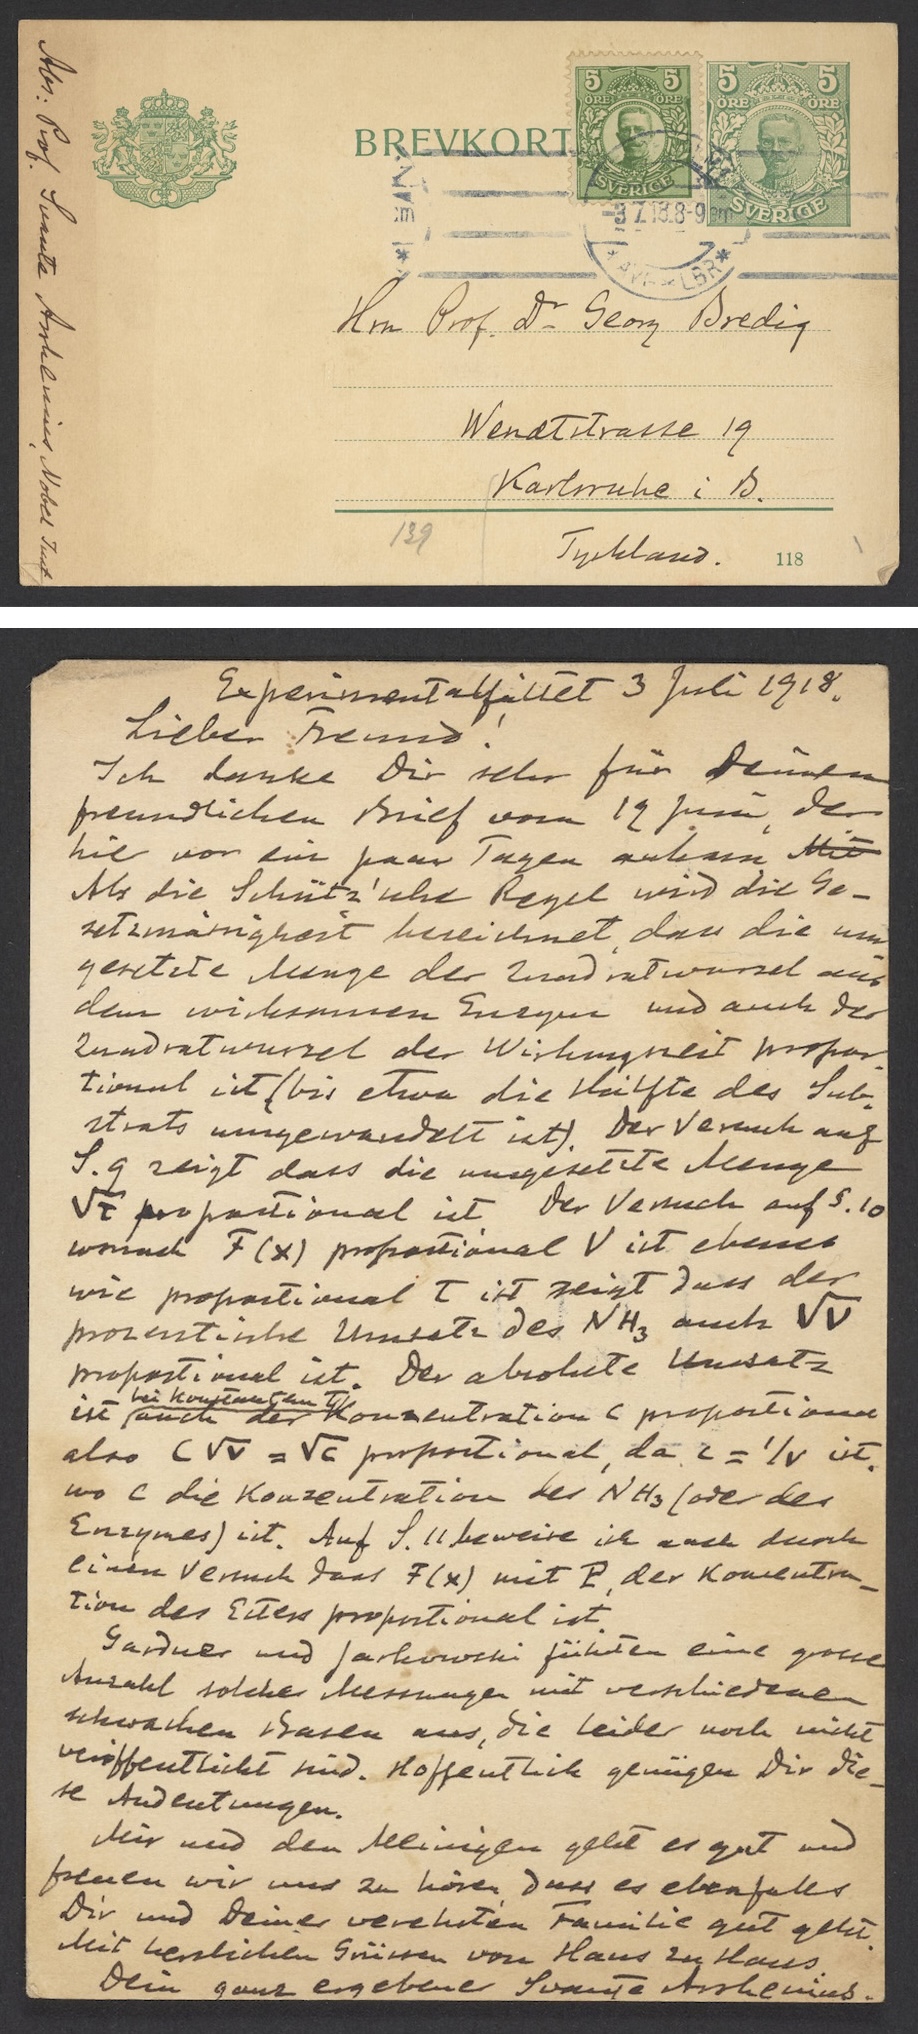 Abs: Prof. Svante Arrhenius, Nobel Inst.
BREVKORT
5 5
ÖRE ÖRE
SVERIGE
5 5
ÖRE ÖRE
SVERIGE
-3 7.18.8-9 em
* AVG. * LBR *
Hrn Prof. Dr Georg Bredig
Wendtstrasse 19
Karlsruhe i B.
139
Tyskland.
118
Experimentalfältet 3 Juli 1918.
Lieber Freund!
Ich danke Dir sehr für Deinen
freundlichen Brief vom 19 Juni, der
hier vor ein paar Tagen ankam. Mit
Als die Schütz'sche Regel wird die Ge-
setzmässigkeit bezeichnet, dass die um
gesetzte Menge der Quadratwurzel aus
dem wirksamen Enzym und auch der
Quadratwurzel der Wirkungszeit propor-
tional ist (bis etwa die Hälfte des Sub-
strats umgewandelt ist). Der Versuch auf
S. 9 zeigt dass die umgesetzte Menge
√τ proportional ist. Der Versuch auf S. 10
wonach F(x) proportional V ist ebenso
wie proportional τ ist zeigt dass der
prozentische Umsatz des NH3 auch √V
proportional ist. Der absolute Umsatz
bei konstantem τ
ist auch der Konzentration C proportional
also C√V = √C proportional, da C = 1/V ist,
wo C die Konzentration des NH3 (oder des
Enzymes) ist. Auf S. 11 beweise ich auch durch
einen Versuch dass F(x) mit E, der Konzentra-
tion des Esters proportional ist.
Gardner und Jarkowski führten eine grosse
Anzahl solcher Messungen mit verschiedenen
schwachen Basen aus, die leider noch nicht
veröffentlicht sind. Hoffentlich genügen Dir die-
se Andeutungen.
Mir und den Meinigen geht es gut und
freuen wir uns zu hören, dass es ebenfalls
Dir und Deiner verehrten Familie gut geht.
Mit herzlichen Grüssen von Haus zu Haus
Dein ganz ergebener Svante Arrhenius.